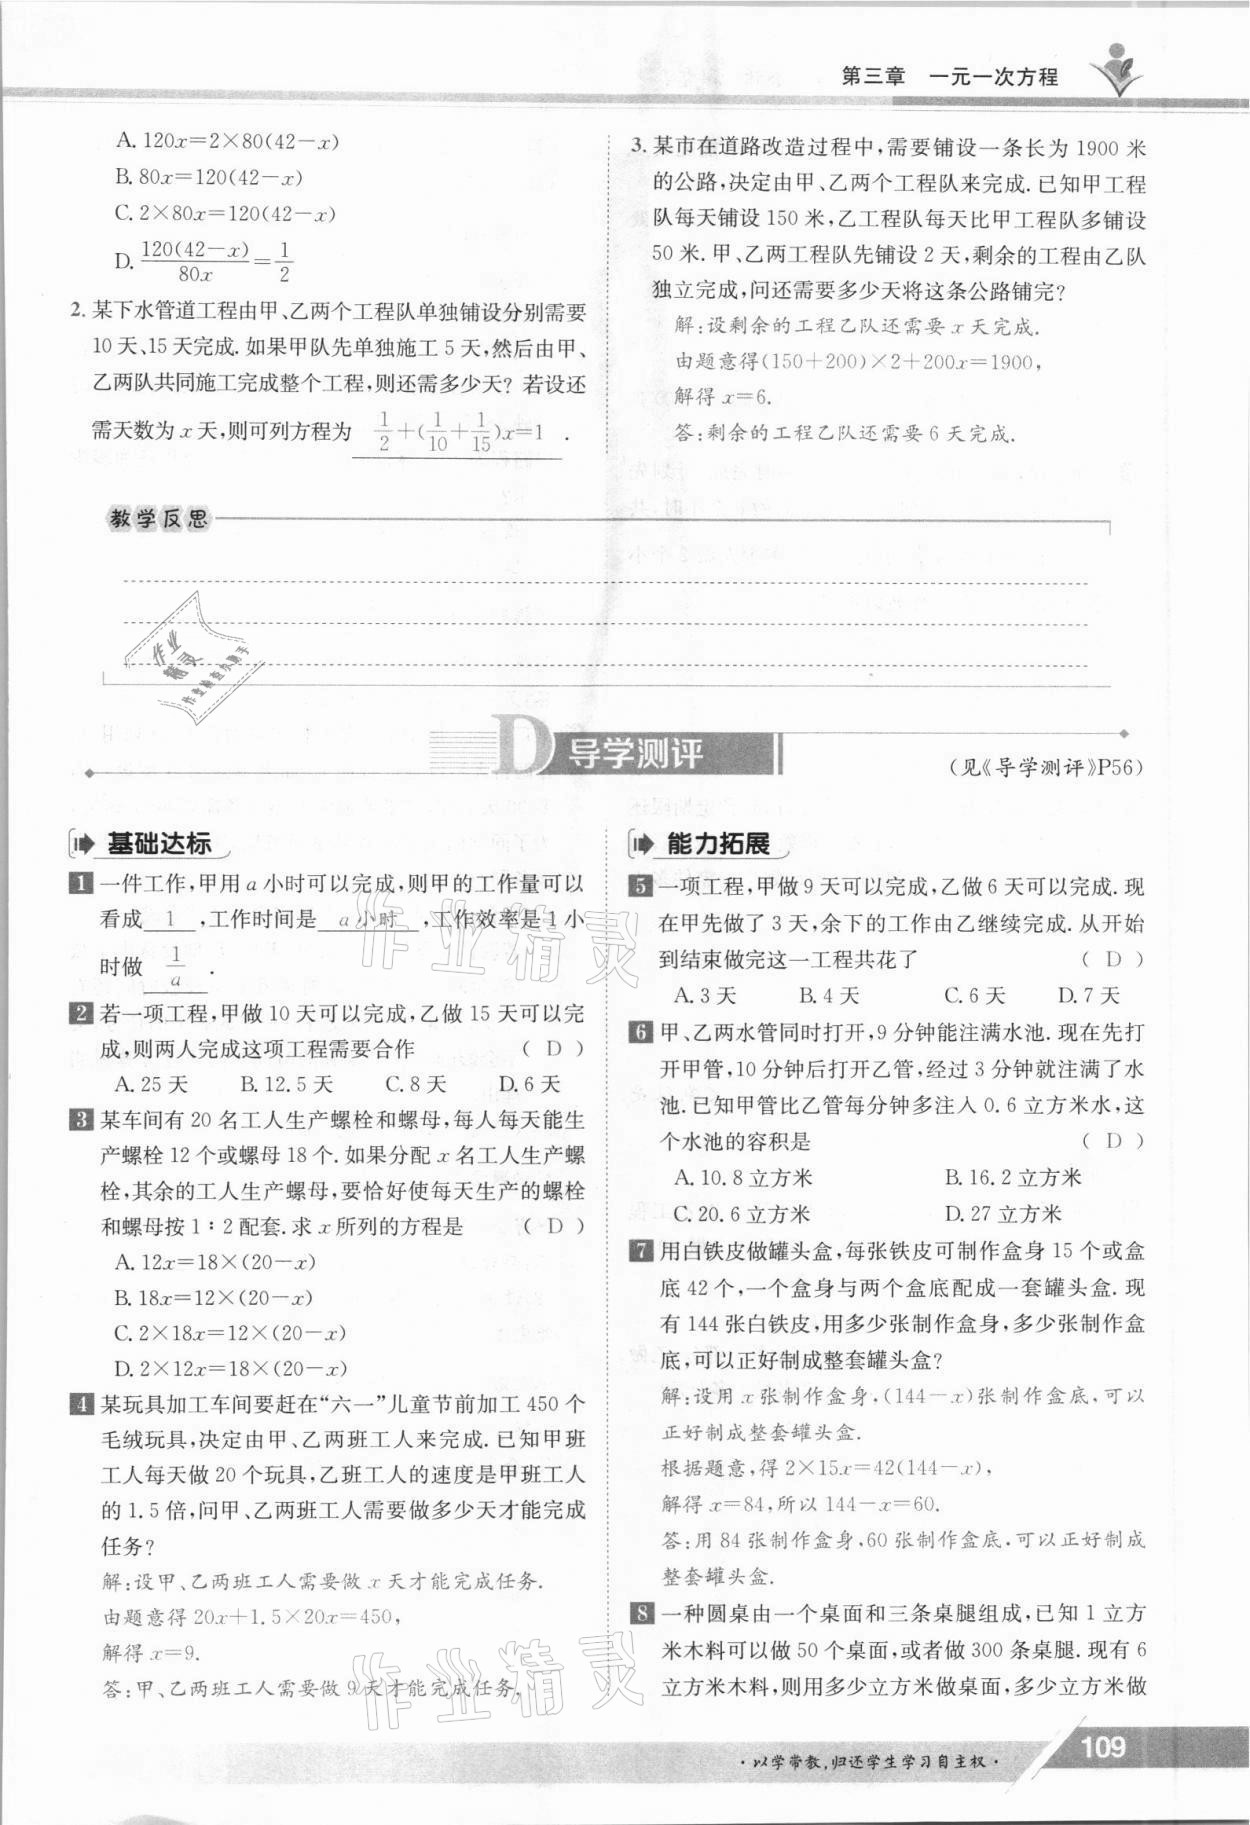 第三章　一元一次方程
A. 120x=2×80(42-x)
B. 80x=120(42-x)
C. 2×80x=120(42-x)
D. 120(42-x)/80x=1/2
2. 某下水管道工程由甲、乙两个工程队单独铺设分别需要
10天、15天完成. 如果甲队先单独施工5天,然后由甲、
乙两队共同施工完成整个工程,则还需多少天? 若设还
需天数为x天,则可列方程为 1/2+(1/10+1/15)x=1 .
3. 某市在道路改造过程中,需要铺设一条长为1900米
的公路,决定由甲、乙两个工程队来完成. 已知甲工程
队每天铺设150米,乙工程队每天比甲工程队多铺设
50米. 甲、乙两工程队先铺设2天,剩余的工程由乙队
独立完成,问还需要多少天将这条公路铺完?
解:设剩余的工程乙队还需要x天完成.
由题意得(150+200)×2+200x=1900,
解得x=6.
答:剩余的工程乙队还需要6天完成.
教学反思
作业
精灵
D 导学测评
(见《导学测评》P56)
基础达标
1 一件工作,甲用a小时可以完成,则甲的工作量可以
看成 1 ,工作时间是 a小时 ,工作效率是1小
时做 1/a .
2 若一项工程,甲做10天可以完成,乙做15天可以完
成,则两人完成这项工程需要合作 ( D )
A. 25天 B. 12.5天 C. 8天 D. 6天
3 某车间有20名工人生产螺栓和螺母,每人每天能生
产螺栓12个或螺母18个. 如果分配x名工人生产螺
栓,其余的工人生产螺母,要恰好使每天生产的螺栓
和螺母按1∶2配套. 求x所列的方程是 ( D )
A. 12x=18×(20-x)
B. 18x=12×(20-x)
C. 2×18x=12×(20-x)
D. 2×12x=18×(20-x)
4 某玩具加工车间要赶在“六一”儿童节前加工450个
毛绒玩具,决定由甲、乙两班工人来完成. 已知甲班
工人每天做20个玩具,乙班工人的速度是甲班工人
的1.5倍,问甲、乙两班工人需要做多少天才能完成
任务?
解:设甲、乙两班工人需要做x天才能完成任务.
由题意得20x+1.5×20x=450,
解得x=9.
答:甲、乙两班工人需要做9天才能完成任务.
能力拓展
5 一项工程,甲做9天可以完成,乙做6天可以完成. 现
在甲先做了3天,余下的工作由乙继续完成. 从开始
到结束做完这一工程共花了 ( D )
A. 3天 B. 4天 C. 6天 D. 7天
6 甲、乙两水管同时打开,9分钟能注满水池. 现在先打
开甲管,10分钟后打开乙管,经过3分钟就注满了水
池. 已知甲管比乙管每分钟多注入0.6立方米水,这
个水池的容积是 ( D )
A. 10.8立方米 B. 16.2立方米
C. 20.6立方米 D. 27立方米
7 用白铁皮做罐头盒,每张铁皮可制作盒身15个或盒
底42个,一个盒身与两个盒底配成一套罐头盒. 现
有144张白铁皮,用多少张制作盒身,多少张制作盒
底,可以正好制成整套罐头盒?
解:设用x张制作盒身,(144-x)张制作盒底,可以
正好制成整套罐头盒.
根据题意,得2×15x=42(144-x),
解得x=84,所以144-x=60.
答:用84张制作盒身,60张制作盒底. 可以正好制成
整套罐头盒.
8 一种圆桌由一个桌面和三条桌腿组成,已知1立方
米木料可以做50个桌面,或者做300条桌腿. 现有6
立方米木料,则用多少立方米做桌面,多少立方米做
作业精灵
作业精灵
· 以学带教,归还学生学习自主权 ·
109